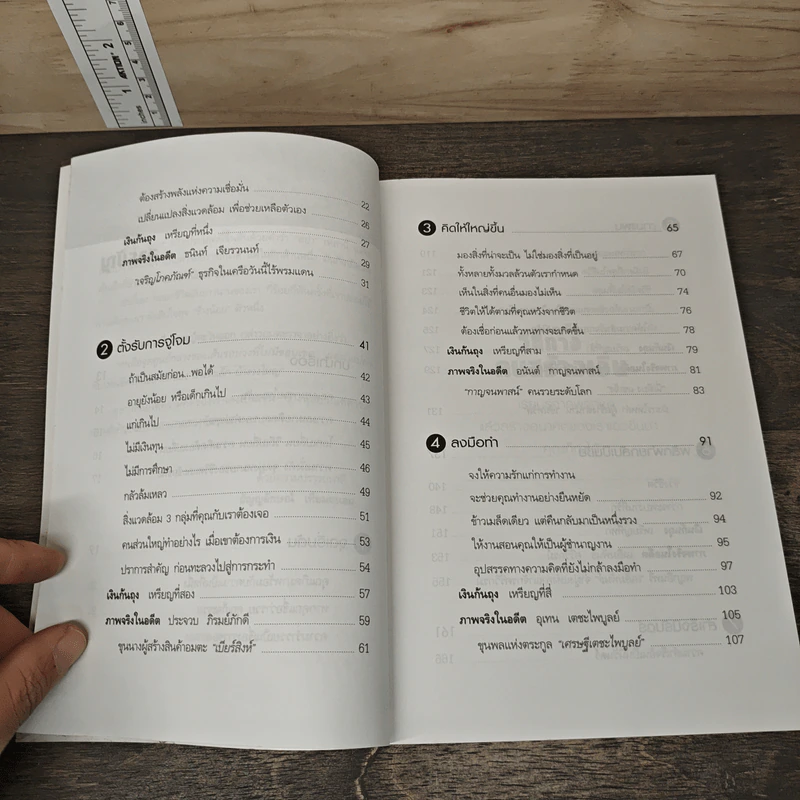 ต้องสร้างพลังแห่งความเชื่อมั่น 22
เปลี่ยนแปลงสิ่งแวดล้อม เพื่อช่วยเหลือตัวเอง 26
เงินก้นถุง เหรียญที่หนึ่ง 27
ภาพจริงในอดีต ธนินท์ เจียรวนนท์ 29
"เจริญโภคภัณฑ์" ธุรกิจในเครือวันนี้ไร้พรมแดน 31
2 ตั้งรับการจู่โจม 41
ถ้าเป็นสมัยก่อน...พอได้ 42
อายุยังน้อย หรือเด็กเกินไป 43
แก่เกินไป 44
ไม่มีเงินทุน 45
ไม่มีการศึกษา 46
กลัวล้มเหลว 49
สิ่งแวดล้อม 3 กลุ่มที่คุณกับเราต้องเจอ 51
คนส่วนใหญ่ทำอย่างไร เมื่อเขาต้องการเงิน 53
ปราการสำคัญ ก่อนทะลวงไปสู่การกระทำ 54
เงินก้นถุง เหรียญที่สอง 57
ภาพจริงในอดีต ประจวบ ภิรมย์ภักดี 59
ขุนนางผู้สร้างสินค้าอมตะ "เบียร์สิงห์" 61
3 คิดให้ใหญ่ขึ้น 65
มองสิ่งที่น่าจะเป็น ไม่ใช่มองสิ่งที่เป็นอยู่ 67
ทั้งหลายทั้งมวลล้วนตัวเรากำหนด 70
เห็นในสิ่งที่คนอื่นมองไม่เห็น 74
ชีวิตให้ได้ตามที่คุณหวังจากชีวิต 76
ต้องเชื่อก่อนแล้วหนทางจะเกิดขึ้น 78
เงินก้นถุง เหรียญที่สาม 79
ภาพจริงในอดีต อนันต์ กาญจนพาสน์ 81
"กาญจนพาสน์" คนรวยระดับโลก 83
4 ลงมือทำ 91
จงให้ความรักแก่การทำงาน
จะช่วยคุณทำงานอย่างยืนหยัด 92
ข้าวเมล็ดเดียว แต่คืนกลับมาเป็นหนึ่งรวง 94
ให้งานสอนคุณให้เป็นผู้ชำนาญงาน 95
อุปสรรคทางความคิดที่ยังไม่กล้าลงมือทำ 97
เงินก้นถุง เหรียญที่สี่ 103
ภาพจริงในอดีต อุเทน เตชะไพบูลย์ 105
ขุนพลแห่งตระกูล "เศรษฐีเตชะไพบูลย์" 107